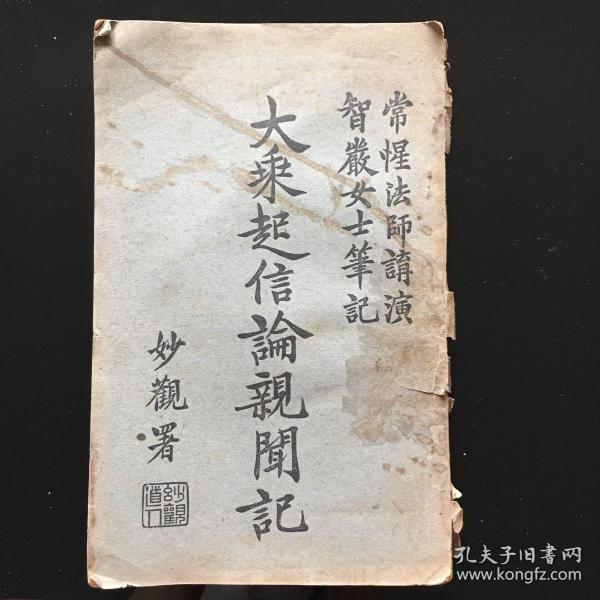 常惺法師講演
智嚴女士筆記
大乘起信論親聞記
妙觀署
妙觀道人
孔夫子旧书网
www.kongfz.com